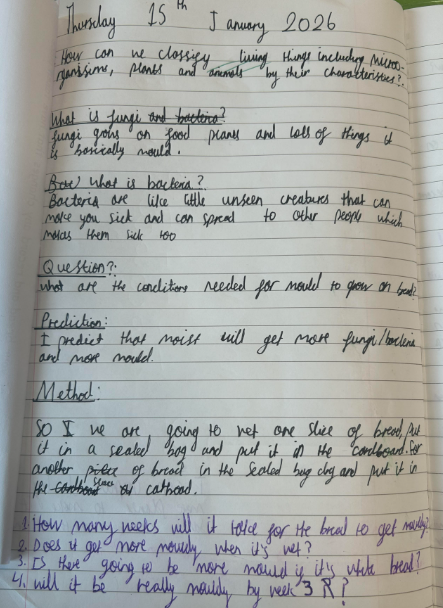 Thursday 15th January 2026
How can we classify living things including micro-
organisims, plants and animals by their characteristics?
What is fungi and bacteria?
fungi grows on food planes and lots of things it
is basically mould.
What is bacteria?
Bacteria are like little unseen creatures that can
make you sick and can spread to other people which
makes them sick too
Question?:
what are the conditions needed for mould to grow on bread?
Prediction:
I predict that moist will get more fungi/bacteria
and more mould.
Method:
So I we are going to wet one slice of bread, put
it in a sealed bag and put it in the cardboard. For
another piece of bread in the sealed bag dry and put it in
the same
1. How many weeks will it take for the bread to get mouldy?
2. Does it get more mouldy when it's wet?
3. Is there going to be more mould if it's white bread?
4. will it be really mouldy by week 3